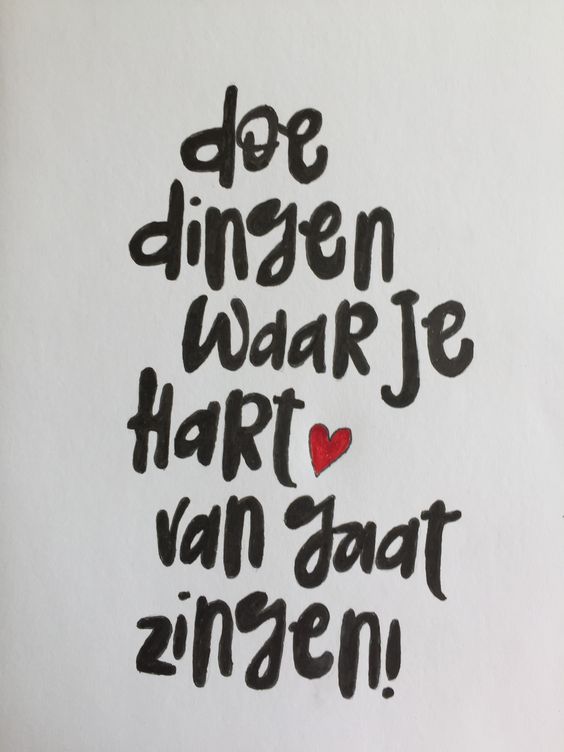 doe
dingen
waar je
Hart
van gaat
zingen!